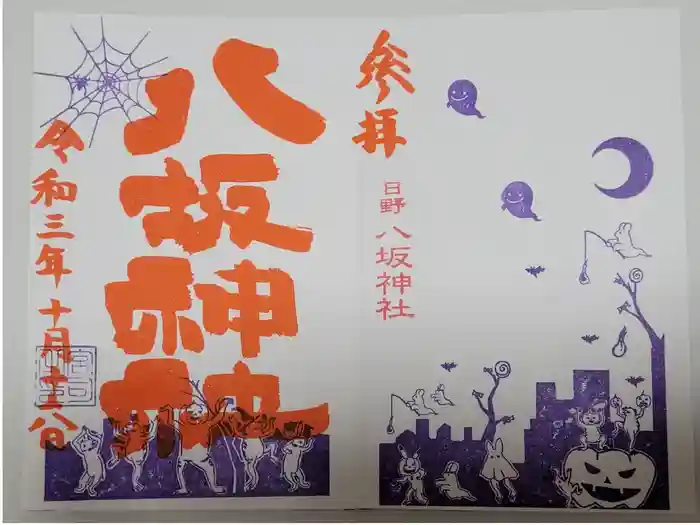 参拝
日野 八坂神社
八坂神社
令和三年十月